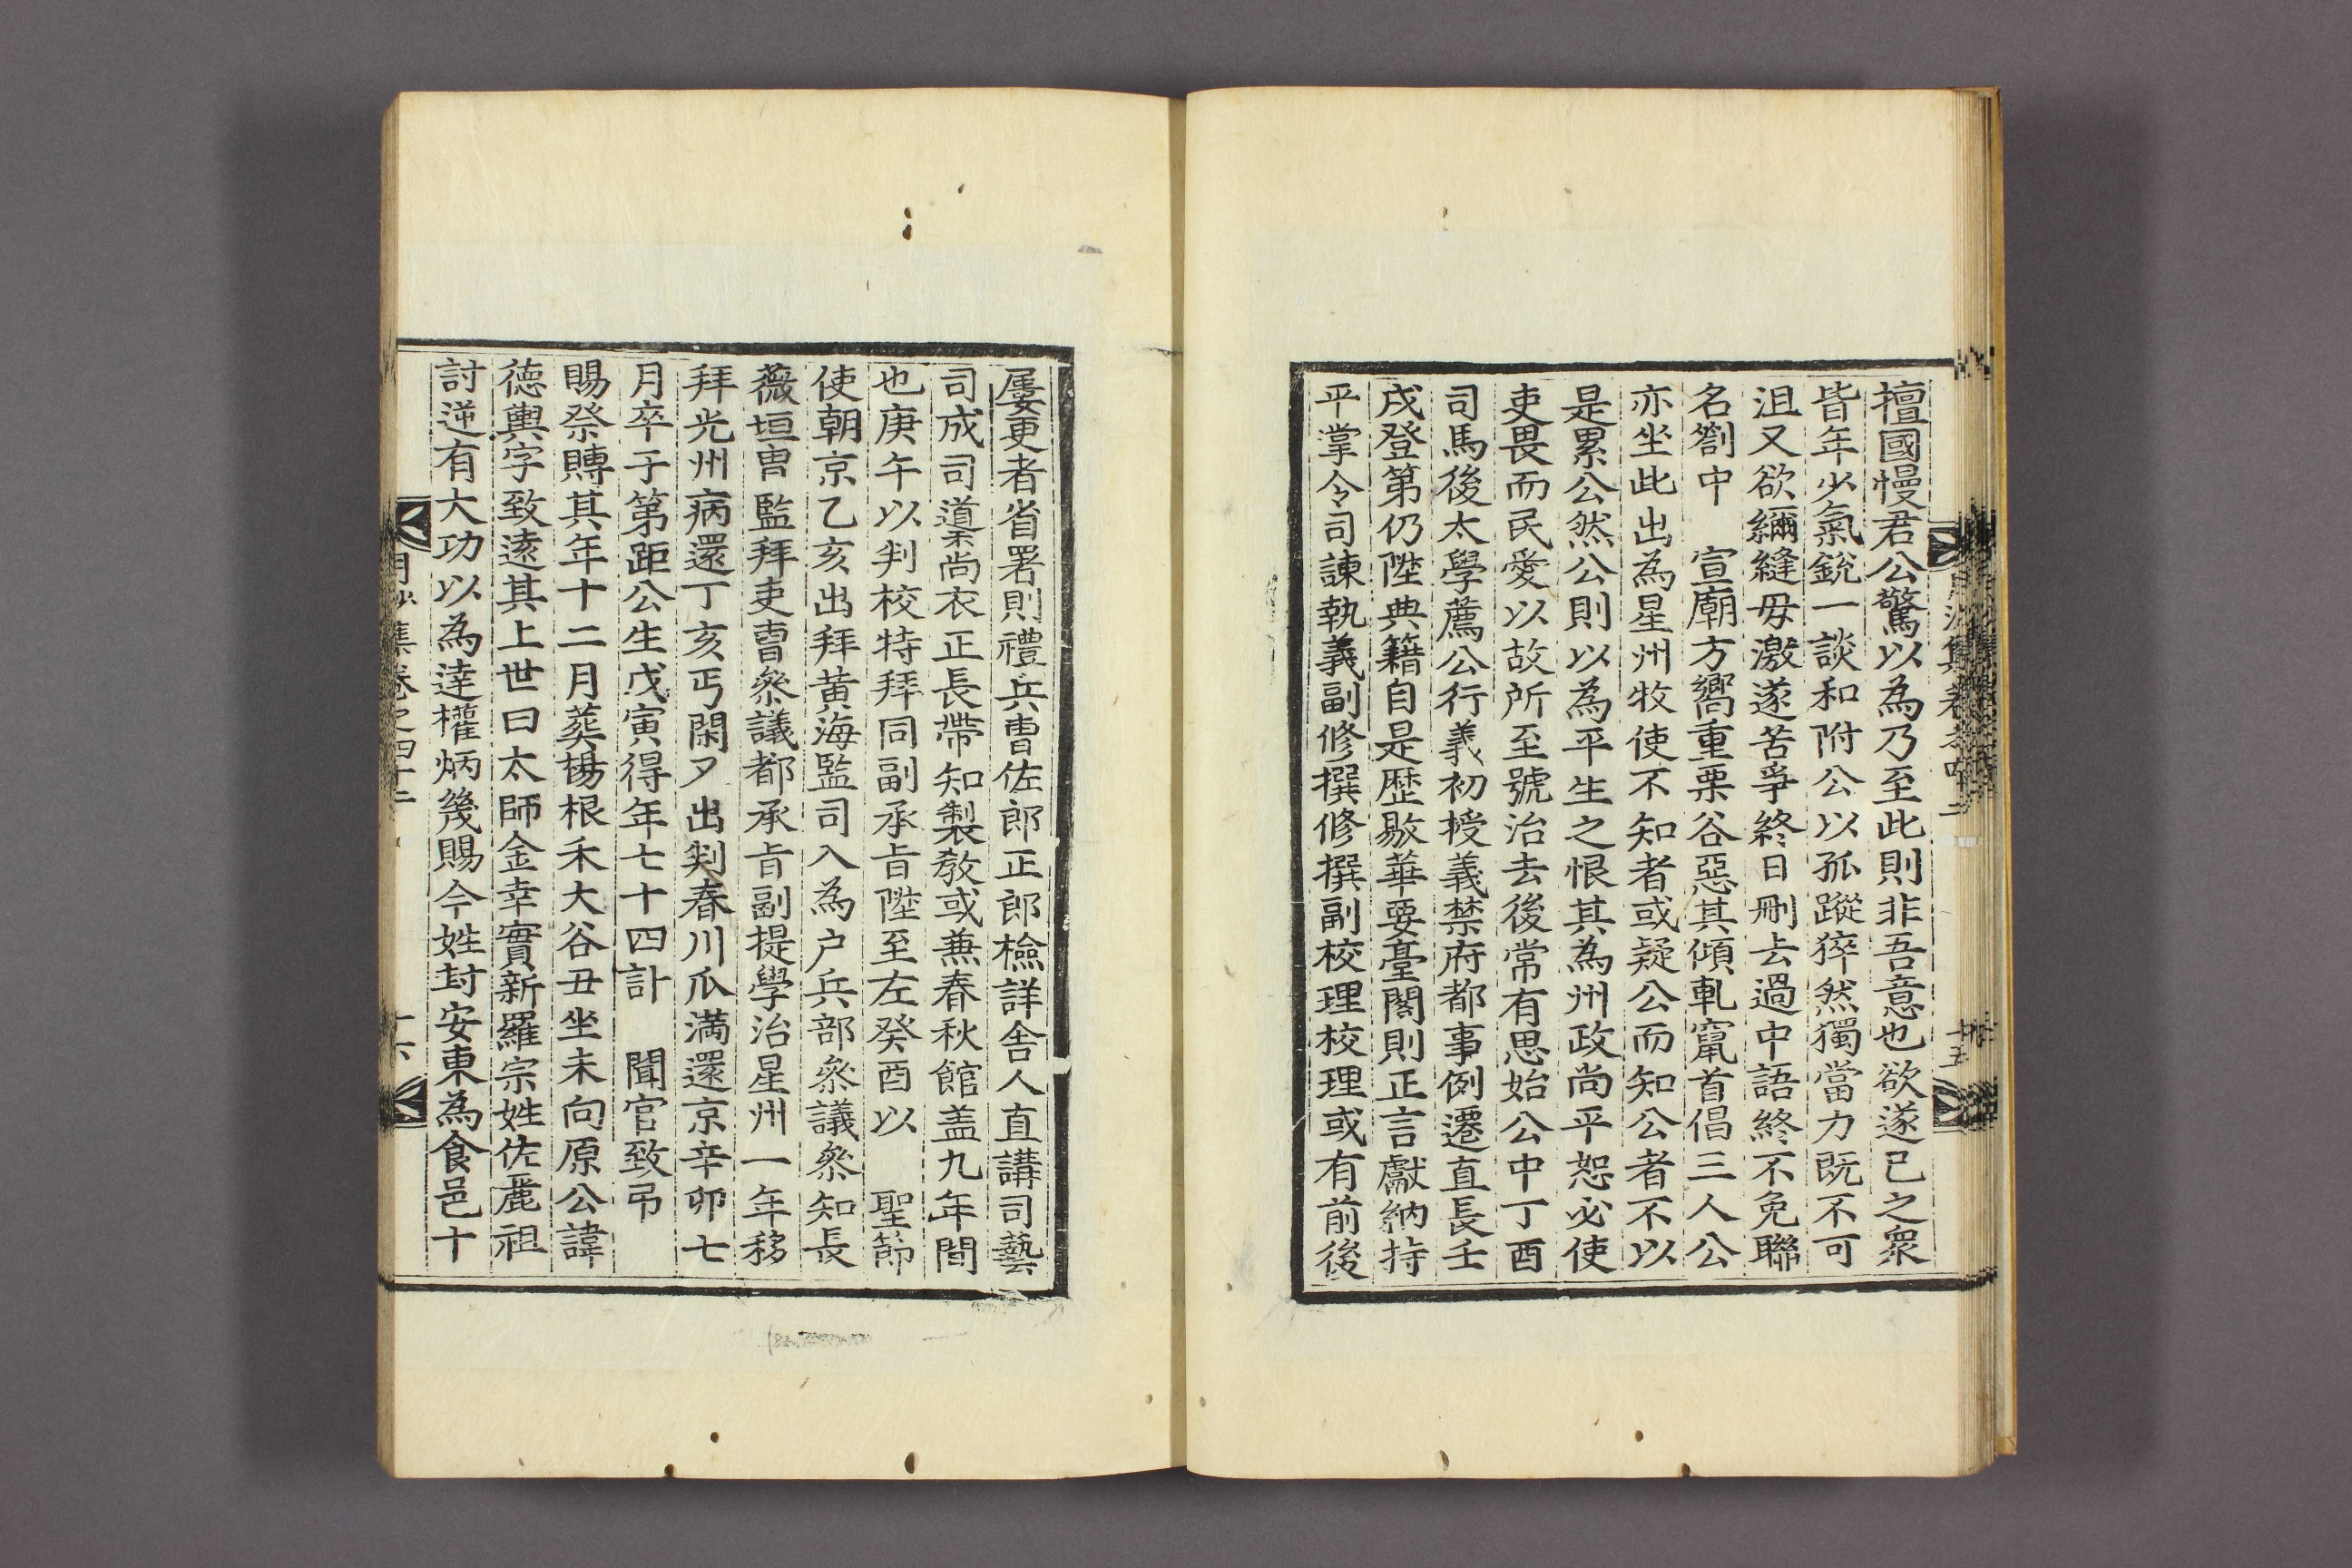 擅國慢君公驚以為乃至此則非吾意也欲遂己之衆
皆年少氣銳一談和附公以孤蹤猝然獨當力既不可
沮又欲綢縫毋激遂苦爭終日刪去過中語終不免聯
名劄中 宣廟方嚮重栗谷惡其傾軋竄首倡三人公
亦坐此出為星州牧使不知者或疑公而知公者不以
是累公然公則以為平生之恨其為州政尚平恕必使
吏畏而民愛以故所至號治去後常有思始公中丁酉
司馬後太學薦公行義初授義禁府都事例遷直長壬
戌登第仍陞典籍自是歷敭華要臺閣則正言獻納持
平掌令司諫執義副修撰修撰副校理校理或有前後
屢更者省署則禮兵曹佐郎正郎檢詳舍人直講司藝
司成司導尚衣正長帶知製敎或兼春秋館盖九年間
也庚午以判校特拜同副承旨陞至左癸酉以 聖節
使朝京乙亥出拜黃海監司入為戶兵部參議參知長
薇垣曺監拜吏曺參議都承旨副提學治星州一年移
拜光州病還丁亥丐閑夕出判春川瓜滿還京辛卯七
月卒于第距公生戊寅得年七十四訃 聞官致弔
賜祭賻其年十二月葬楊根禾大谷丑坐未向原公諱
德輿字致遠其上世曰太師金幸實新羅宗姓佐麗祖
討逆有大功以為達權炳幾賜今姓封安東為食邑十
月沙集卷之四十二
十六